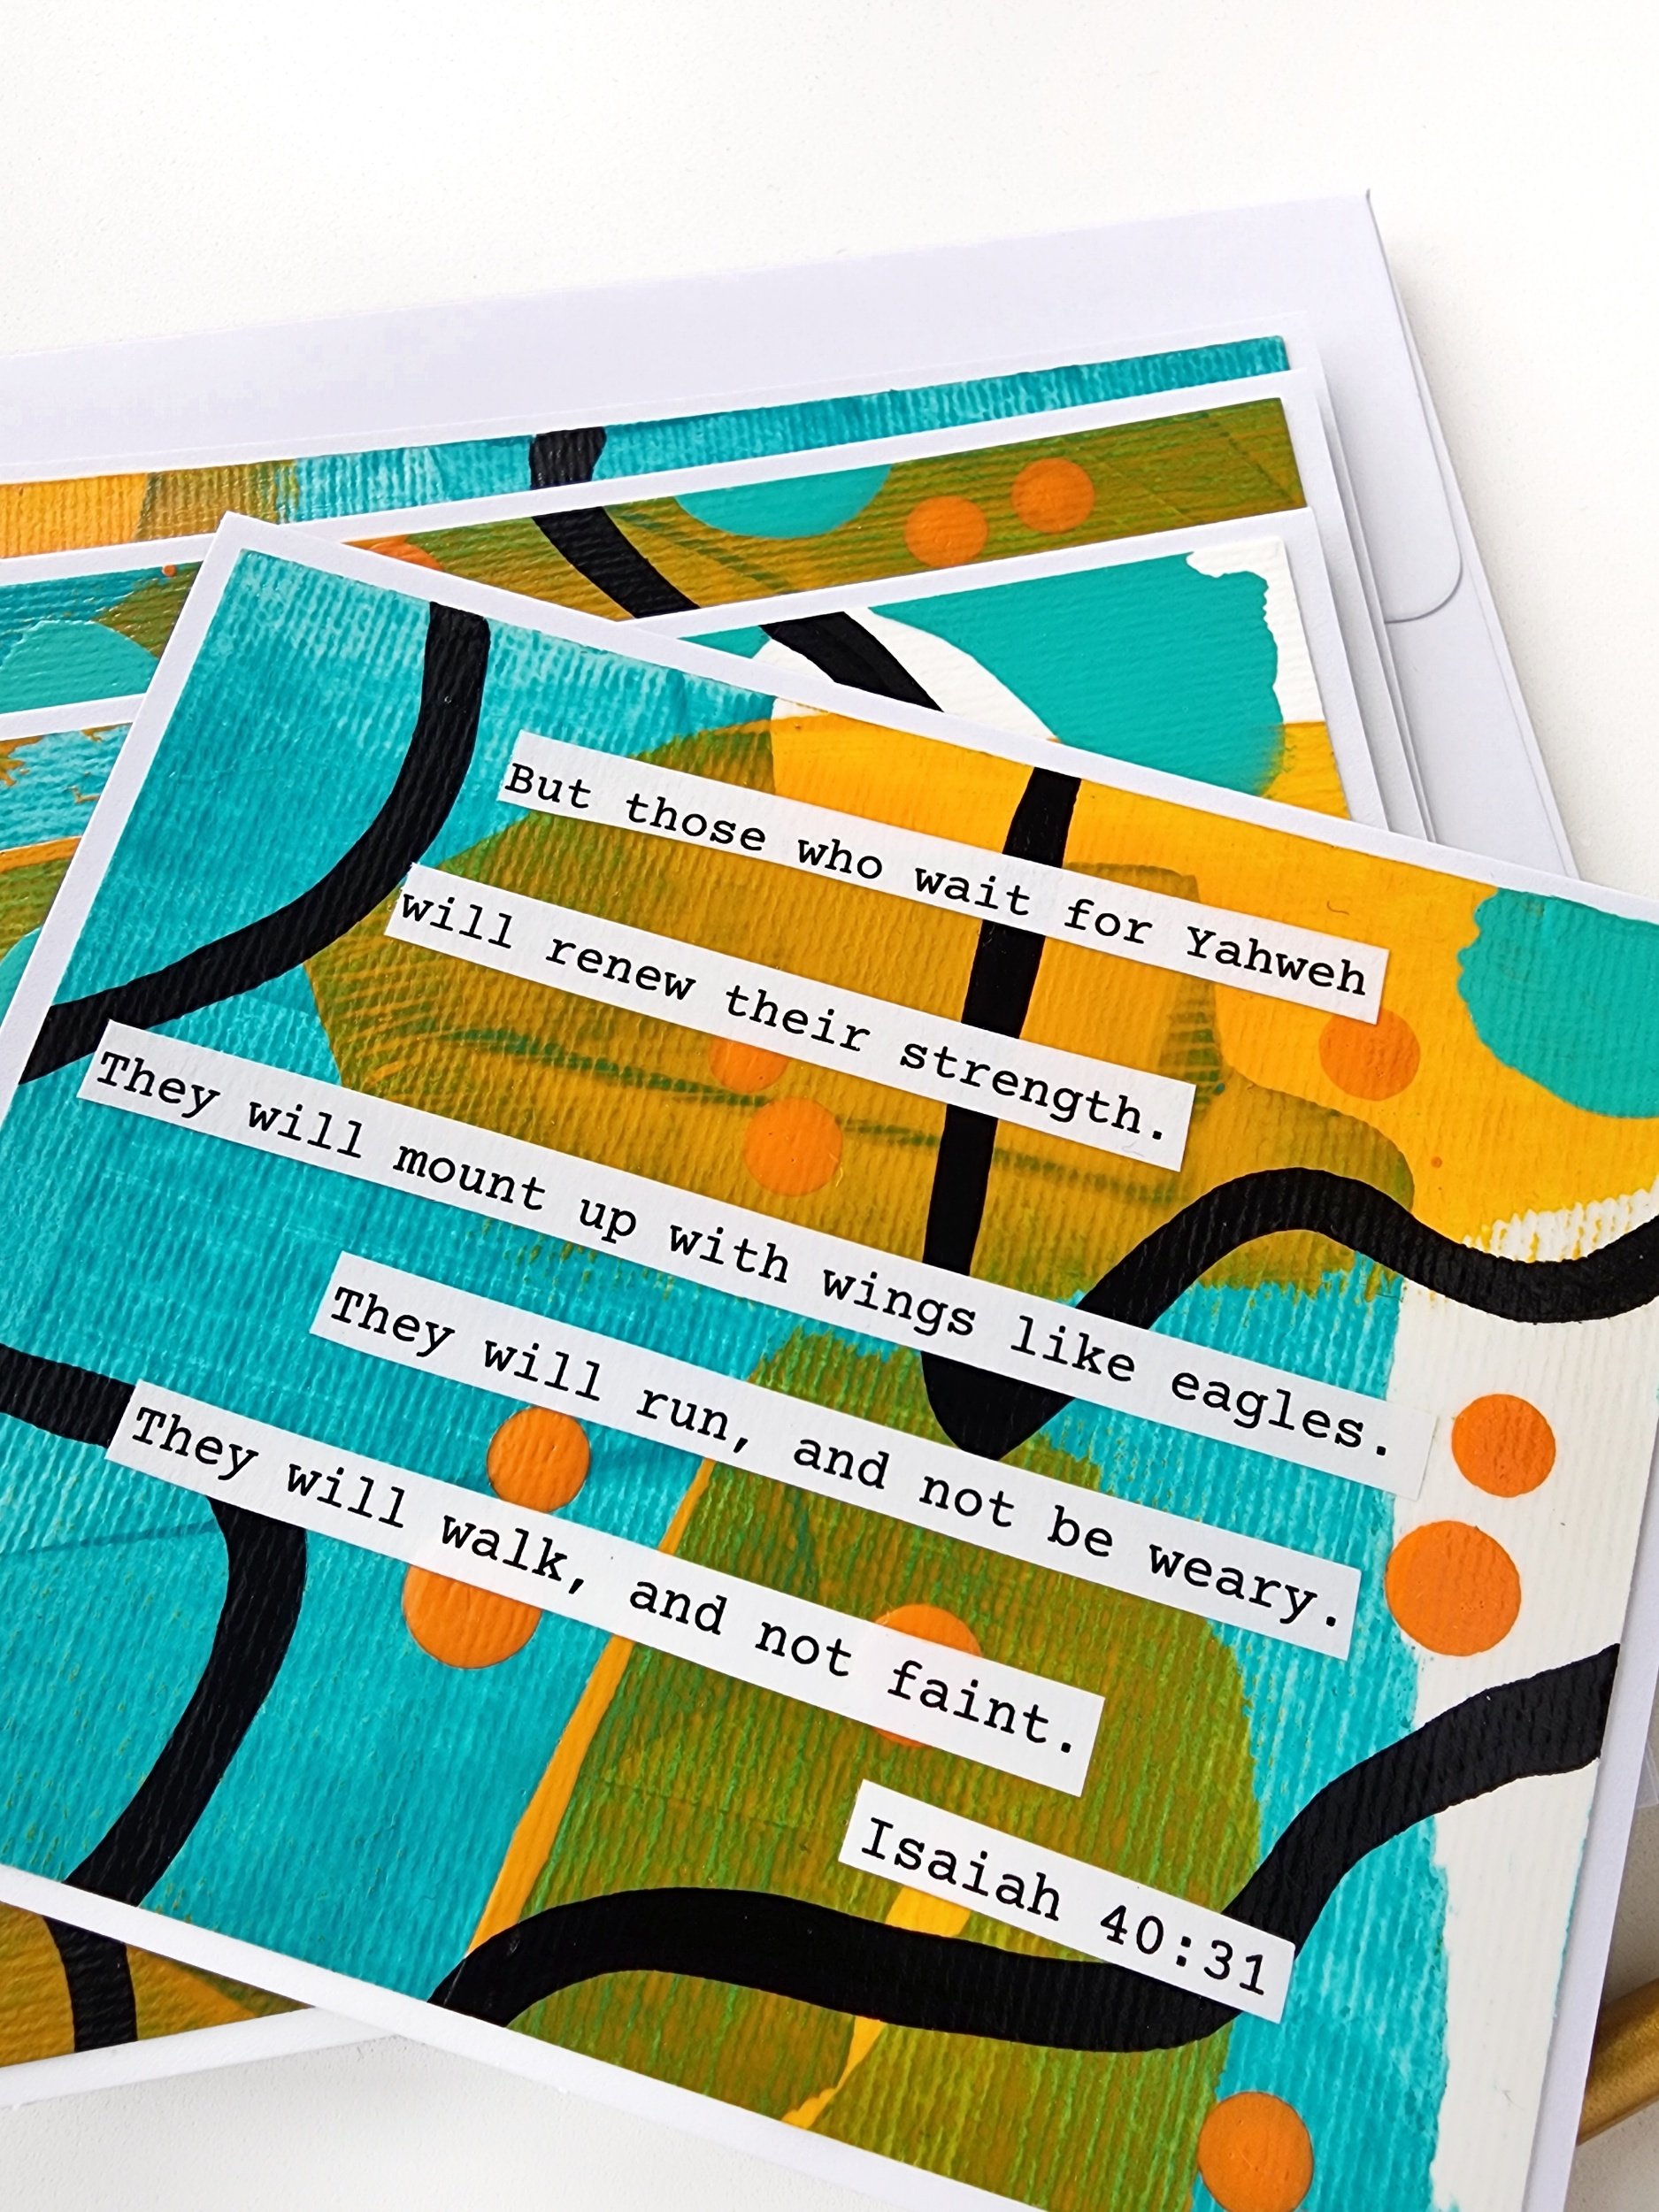 But those who wait for Yahweh
will renew their strength.
They will mount up with wings like eagles.
They will run, and not be weary.
They will walk, and not faint.
Isaiah 40:31